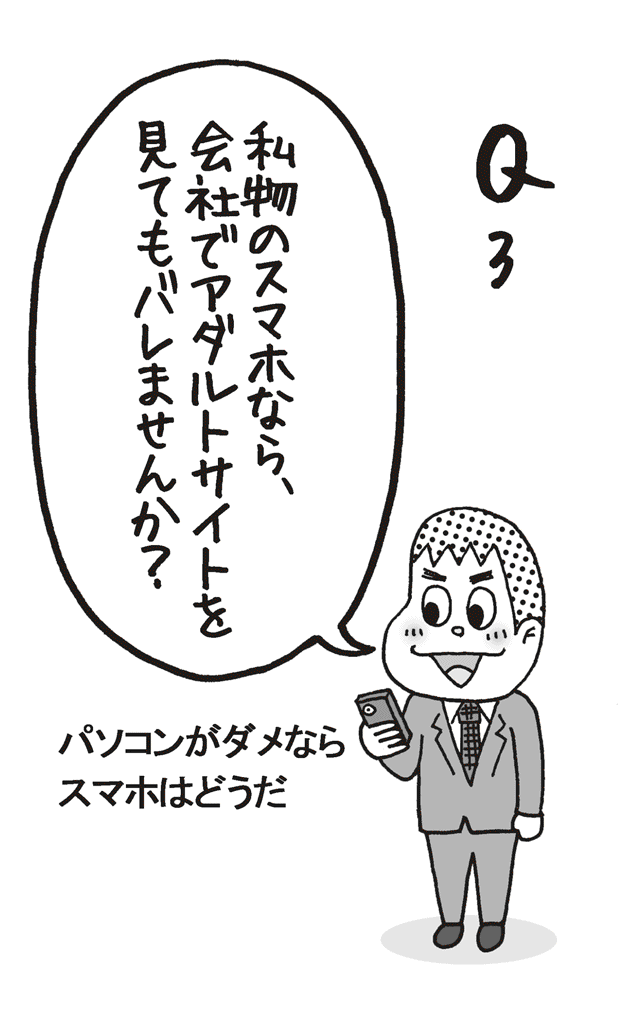 Q3
私物のスマホなら、
会社でアダルトサイトを
見てもバレませんか?
パソコンがダメなら
スマホはどうだ